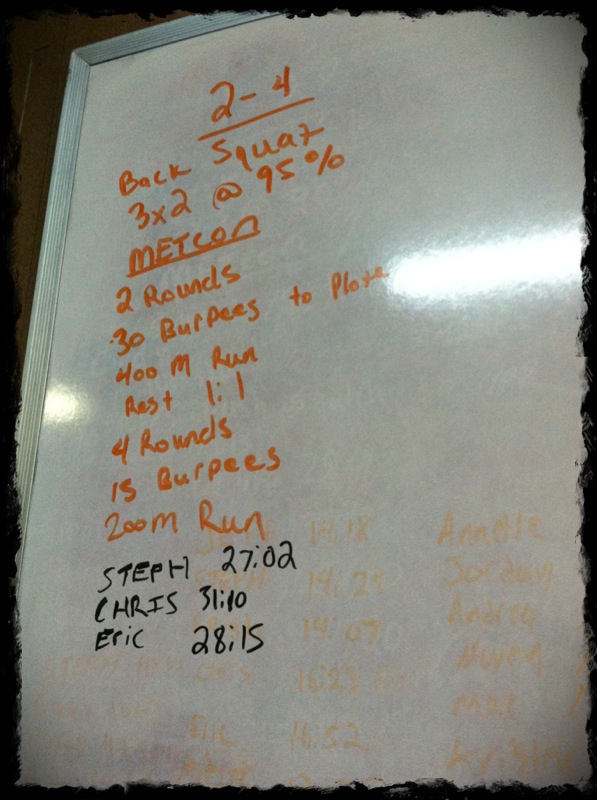 2-4
Back Squat
3x2 @ 95%
METCON
2 Rounds
30 Burpees to Plate
400 M Run
Rest 1:1
4 Rounds
15 Burpees
200m Run
STEPH 27:02
CHRIS 31:10
Eric 28:15
14:18 Annette
14:25 Jordan
14:09 Andrea
Eric 16:52